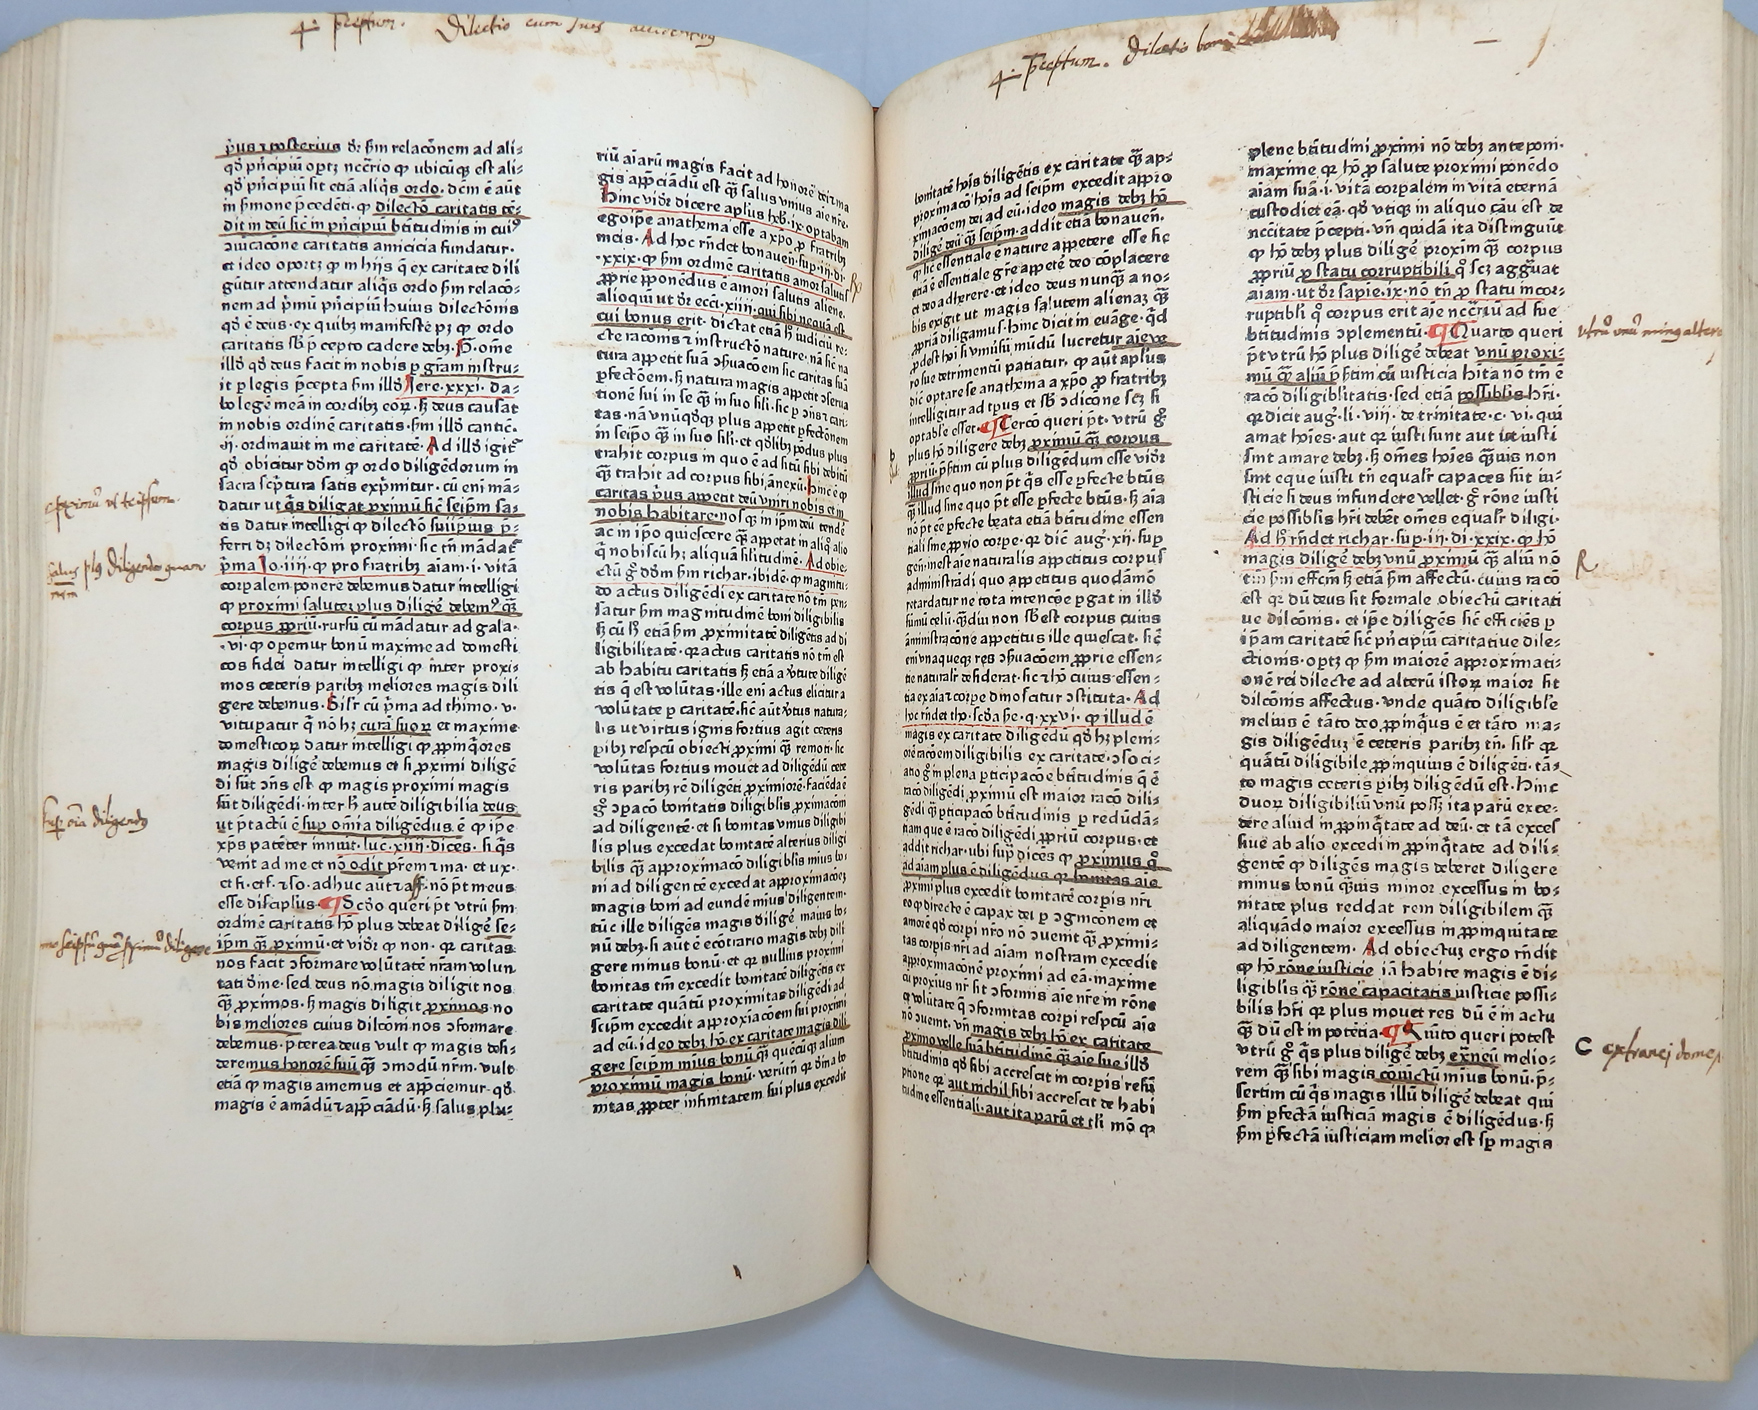 4 p̄ceptum. Dilectio cum suis
p̄us ⁊ posterius dr̄ ẜm relacōnem ad ali⸗
qd̄ pn̄cipiū optꝫ nc̄c̄rio ꝙ ubicūqꝫ est ali⸗
qd̄ pn̄cipiū sit etiā aliqͥs ordo. dc̄m ē aūt
in ẜmone p̄cedēti. ꝙ dilectō caritatis tē⸗
dit in deū sic in pn̄cipiū btitudinis in cuiꝰ
ↄīucacōne caritatis amicicia fundatur.
et ideo oportꝫ ꝙ in hijs q̄ ex caritate dili
gūtur attendatur aliqͥs ordo ẜm relacō⸗
nem ad pͥmū pn̄cipiū huius dilectōnis
qd̄ ē deus. ex quibꝫ manifeste pꝫ ꝙ ordo
caritatis sb̄ p̄cepto cadere debꝫ. Scd̄ om̄e
illd̄ qd̄ deus facit in nobis ꝑ gr̄am instru⸗
it ꝑ legis p̄cepta ẜm illd̄ Iere. xxxi. da⸗
bo legē meā in cordibꝫ eoꝝ. ꝫ deus causat
in nobis ordinē caritatis. ẜm illd̄ cantic̄.
.ij. ordinauit in me caritatē. Ad illd̄ igit᷑
qd̄ obicitur dd̄m ꝙ ordo diligēdorum in
sacra scp̄tura satis exp̄mitur. cū eni mā⸗
datur ut qͥs diligat ꝓximū sic seip̄m sa⸗
tis datur intelligi ꝙ dilectō suiip̄ius p̄⸗
ferri dꝫ dilectōni proximi. sic tn̄ mādat᷑
pͥma Io. iiij. ꝙ pro fratribꝫ aīam .i. vitā
corpalem ponere debemus datur intelligi
ꝙ proximi salutē plus diligē debemꝰ q̄ꝫ
corpus ꝓpriū. rursū cū mādatur ad gala.
.vi. ꝙ opemur bonū maxime ad domesti
cos fidei datur intelligi ꝙ inter proxi⸗
mos ceteris paribꝫ meliores magis dili
gere debemus. Silr̄ cū pͥma ad thimo. v.
vitupatur q̄ nō hꝫ curā suoꝝ et maxime
domesticoꝝ datur intelligi ꝙ ꝓpinqͥores
magis diligē debemus et si ꝓximi diligē
di sūt dn̄s est ꝙ magis proximi magis
sūt diligēdi. inter ꝫ autē diligibilia deus
ut p̄tactū ē sup om̄ia diligēdus ē ꝙ ip̄e
xp̄s patēter innuit. luc. xiiij. dices. si qͥs
venit ad me et nō odit pr̄em ⁊ ma. et ux.
et fi. et f. ⁊ so. adhuc aūt ⁊ aīaꝫ. nō pt̄ meus
esse discip̄lus. ¶ Scdō queri pt̄ vtrū ẜm
ordinē caritatis hō plus debeat diligē se⸗
ip̄m q̄ꝫ ꝓximū. et vidr̄ ꝙ non. qꝛ caritas
nos facit ↄformare volūtatē nr̄am volun
tati dīme. sed deus nō magis diligit nos
q̄ꝫ ꝓximos. ꝫ magis diligit ꝓximos no
bis meliores cuius dilcōm nos ↄformare
debemus. p̄terea deus vult ꝙ magis desi⸗
deremus honorē suū q̄ꝫ ↄmodū nr̄m. vult
etiā ꝙ magis amemus et app̄ciemur. qd̄
magis ē amādū ⁊ app̄ciādū. ꝫ salus plu⸗
riū aīarū magis facit ad honorē dei ⁊ ma
gis app̄ciādū est q̄ꝫ salus vnius aīe nr̄e.
Hinc vidr̄ dicere aplus Ro. ix. optabam
egoip̄e anathema esse a xp̄o ꝓ fratribꝫ
meis. Ad hoc rn̄det bonauen̄. sup .iij. di.
.xxix. ꝙ ẜm ordinē caritatis amor salutis
ꝓprie p̄ponēdus ē amori salutis aliene.
alioqui ut dr̄ ecci. xiiij. qui sibi nequā est
cui bonus erit. dictat etiā ꝫ iudiciū re⸗
cte racōnis ⁊ instructō nature. nā sic na
tura appetit suā ↄẜuacōem sic caritas suā
ꝑfectōem. ꝫ natura magis appetit ↄẜua
tionē sui in se q̄ꝫ in suo sili. sic ꝑ ↄn̄s ⁊ cari⸗
tas. nā vnūqd̄qꝫ plus appetit ꝑfectōnem
in seipō q̄ꝫ in suo sili. et qd̄libꝫ podus plus
trahit corpus in quo ē ad sitū sibi debitū
q̄ꝫ trahit ad corpus sibi ānexū. Hinc ē ꝙ
caritas pͥus appetit deū vniri nobis et in
nobis habitare. nosqꝫ in ip̄m deū tendē
ac in ip̄o quiescere q̄ꝫ appetat in aliqͦ alio
q̄ nobiscū hꝫ aliquā silitudinē. Ad obie⸗
ctū gͦ dd̄m ẜm richar. ibidē. ꝙ magnitu
do actus diligēdi ex caritate nō tm̄ pen⸗
satur ẜm magnitudinē boni diligibilis
ꝫ cū ꝫ etiā ẜm ꝓximitatē diligētis ad di
ligibilitatē. qꝛ actus caritatis nō tm̄ est
ab habitu caritatis ꝫ etiā a v̄tute diligē
tis q̄ est volūtas. ille eni actus elicitur a
volūtate ꝑ caritatē. sic aūt v̄tus natura⸗
lis ut virtus ignis fortius agit ceteris
pibꝫ respcū obiecti ꝓximi q̄ꝫ remoti. sic
volūtas fortius mouet ad diligēdū cete
ris paribꝫ rē diligēti ꝓximiorē. Facieda ē
gͦ ↄpacō bonitatis diligiblis ꝓximacōni
ad diligentē. et si bonitas vnius diligibi
lis plus excedat bonitatē alterius diligi
bilis q̄ꝫ approximacō diligiblis mius bo
ni ad diligentē excedat approximacōeꝫ
magis boni ad eundē mius diligentem.
tūc ille diligēs magis diligē maius bo⸗
nū debꝫ. si aūt ē ecōtrario magis debꝫ dili
gere minus bonū. et qꝛ nullius proximi
bonitas tm̄ excedit bonitatē diligētis ex
caritate quātū proximitas diligēdi ad
seip̄m excedit approxiacōem sui proximi
ad eū. ideo debꝫ hō ex caritate magis dili
gere seip̄m mius bonū q̄ꝫ quēcūqꝫ alium
proximū magis bonū. verūtn̄ qꝛ dīna bo
nitas ꝓpter infinitatem sui plus excedit
ut seip̄sum
salus plꝰ diligenda quam
suꝑ oīa diligendꝰ
seip̄sū quā ꝓximū diligere
4 p̄ceptum. Dilectio
bonitatē hoīs diligētis ex caritate q̄ꝫ ap⸗
proximacō hoīs ad seip̄m excedit appro
ximacōem dei ad eū. ideo magis debꝫ hō
diligē deū q̄ꝫ seip̄m. addit etiā bonauen̄.
ꝙ sic essentiale ē nature appetere esse sic
etiā ē essentiale gr̄e appetē deo cōplacere
et deo adherere. et ideo deus nunqͣꝫ a no⸗
bis exigit ut magis salutem alienaꝫ q̄ꝫ
ꝓpriā diligamus. hinc dicit in euāge. qd̄
ꝓdest hoī si vniūsū mūdū lucretur aīe vo
ro sue detrimentū patiatur. ꝙ aūt aplus
dic̄ optare se anathema a xp̄o ꝓ fratribꝫ
intelligitur ad tp̄us et sb̄ ↄdicōne scꝫ si
optable esset. ¶ Tercō queri pt̄. vtrū gͦ
plus hō diligere debꝫ ꝓximū q̄ꝫ corpus
ꝓpriū. p̄sertim cū plus diligēdum esse vidr̄
illud sine quo non pt̄ qͥs esse ꝑfecte btūs
q̄ꝫ illud sine quo pt̄ esse ꝑfecte btūs. ꝫ aīa
nō pt̄ ēē ꝑfecte beata etiā btitudine essen
tiali sine ꝓprio corpe. qꝛ dic̄ aug. xij. sup
gen̄. inest aīe naturalis appetitus corpus
administrādi quo appetitus quodāmō
retardatur ne tota intencōe ꝑgat in illd̄
sūmū celū. q̄ꝫdiu non sb̄est corpus cuius
āministracōne appetitus ille quiescat. sic̄
eni vnaqueqꝫ res ↄẜuacōem ꝓprie essen⸗
tie naturalr̄ desiderat. sic ⁊ hō cuius essen⸗
tia ex aīa ⁊ corpe dinoscitur ↄstituta. Ad
hoc rn̄det tho. scd̄a scd̄e. q. xxvi. ꝙ illud ē
magis ex caritate diligēdū qd̄ hꝫ pleni⸗
orē racōem diligibilis ex caritate. ↄsoci⸗
atio gͦ in plena ꝑticipacōe btitudinis q̄ ē
racō diligēdi ꝓximū est maior racō dili⸗
gēdi q̄ ꝑticipacō btitudinis ꝑ redūdā⸗
tiam que ē racō diligēdi ꝓpriū corpus. et
addit richar. ubi sup̄ dices ꝙ ꝓximus qͦ
ad aīam plus ē diligēdus qꝛ bonitas aīe
ꝓximi plus excedit bonitatē corpis nr̄i
eo ꝙ directe ē capax dei ꝑ ↄgnicōnem et
amorē qd̄ corpi nr̄o nō ↄuenit q̄ꝫ ꝓximi⸗
tas corpis nr̄i ad aīam nostram excedit
approximacōnē proximi ad eā. maxime
cū proxius nr̄ sit ↄformis aīe nr̄e in rōne
⁊ volūtate q̄ ↄformitas corpi respcū aīe
nō ↄuenit. vn̄ magis debꝫ hō ex caritate
ꝓximo velle suā btitudinē q̄ꝫ aīe sue illd̄
btitudinis qd̄ sibi accrescit in corpis resū
ptione qꝛ aut nichil sibi accrescit de habi
tudine essentiali. aut ita parū et tli mō qꝛ
plene btitudini ꝓximi nō debꝫ anteponi.
maxime qꝛ hō ꝓ salute proximi ponēdo
aīam suā .i. vitā corpalem in vitā eternā
custodiet eā. qd̄ vtiqꝫ in aliquo cāu est de
nc̄citate p̄cepti. vn̄ quidā ita distinguūt
ꝙ hō debꝫ plus diligē proximū q̄ꝫ corpus
ꝓpriū ꝓ statu corruptibili qͦ scꝫ aggͣuat
aīam. ut dr̄ sapie. ix. nō tn̄ ꝓ statu incor⸗
ruptibli qͦ corpus erit aīe nc̄c̄riū ad sue
btitudinis ↄplementū. ¶ Quarto queri
pt̄ vtrū hō plus diligē debeat vnū proxi⸗
mū q̄ꝫ aliū p̄sertim cū iusticia hita nō tm̄ ē
racō diligiblitatis. sed etiā possiblis hr̄i.
qꝛ dicit aug. li. viij. de trinitate. c. vi. qui
amat hoīes. aut qꝛ iusti sunt aut ut iusti
sint amare debꝫ. ꝫ om̄es hoīes q̄ꝫuis non
sint eque iusti tn̄ equalr̄ capaces sūt iu⸗
sticie si deus infundere vellet. gͦ rōne iusti
cie possiblis hr̄i debēt om̄es equalr̄ diligi.
Ad ꝫ rn̄det richar. sup .iij. di. xxix. ꝙ hō
magis diligē debꝫ vnū ꝓximū q̄ꝫ aliū nō
tm̄ ẜm effc̄m ꝫ etiā ẜm affectū. cuius racō
est qꝛ dū deus sit formale obiectū caritati
ue dilcōnis. et ip̄e diligēs sic effiiciēs ꝑ
ip̄am caritatē sic pn̄cipiū caritatiue dile⸗
ctionis. optꝫ ꝙ ẜm maiorē approximati⸗
onē rei dilecte ad alterū istoꝝ maior sit
dilcōnis affectus. vnde quāto diligible
melius ē tāto deo ꝓpinqͥus ē et tāto ma⸗
gis diligēdū ē ceteris paribꝫ tn̄. silr̄ qꝛ
quātū diligibile ꝓpinquius ē diligēti. tā⸗
to magis ceteris pibꝫ diligēdū est. Hinc
duoꝝ diligibiliū vnū posꝫ ita parū exce⸗
dere aliud in ꝓpinqͥtate ad deū. et tā excel
siue ab alio excedi in ꝓpinqͥtate ad dili⸗
gentē ꝙ diligēs magis deberet diligere
minus bonū q̄ꝫuis minor excessus in bo⸗
nitate plus reddat rem diligibilem q̄ꝫ
aliquādo maior excessus in ꝓpinquitate
ad diligentem. Ad obiectūs ergo rn̄dit
ꝙ hō rōne iusticie iā habite magis ē di⸗
ligiblis q̄ꝫ rōne capacitatis iusticie possi⸗
bilis hr̄i qꝛ plus mouet res dū ē in actu
q̄ꝫ dū est in potētia. ¶ Quinto queri potest
vtrū gͦ qͥs plus diligē debꝫ extraneū melio⸗
rem q̄ꝫ sibi magis cōiūctū mius bonū. p̄⸗
sertim cū qͥs magis illū diligē debeat qui
ẜm ꝑfectā iusticiā magis ē diligēdus. ꝫ
ẜm ꝑfectā iusticiam melior est sp̄ magis
utrū unū quā alterū
R
extranei